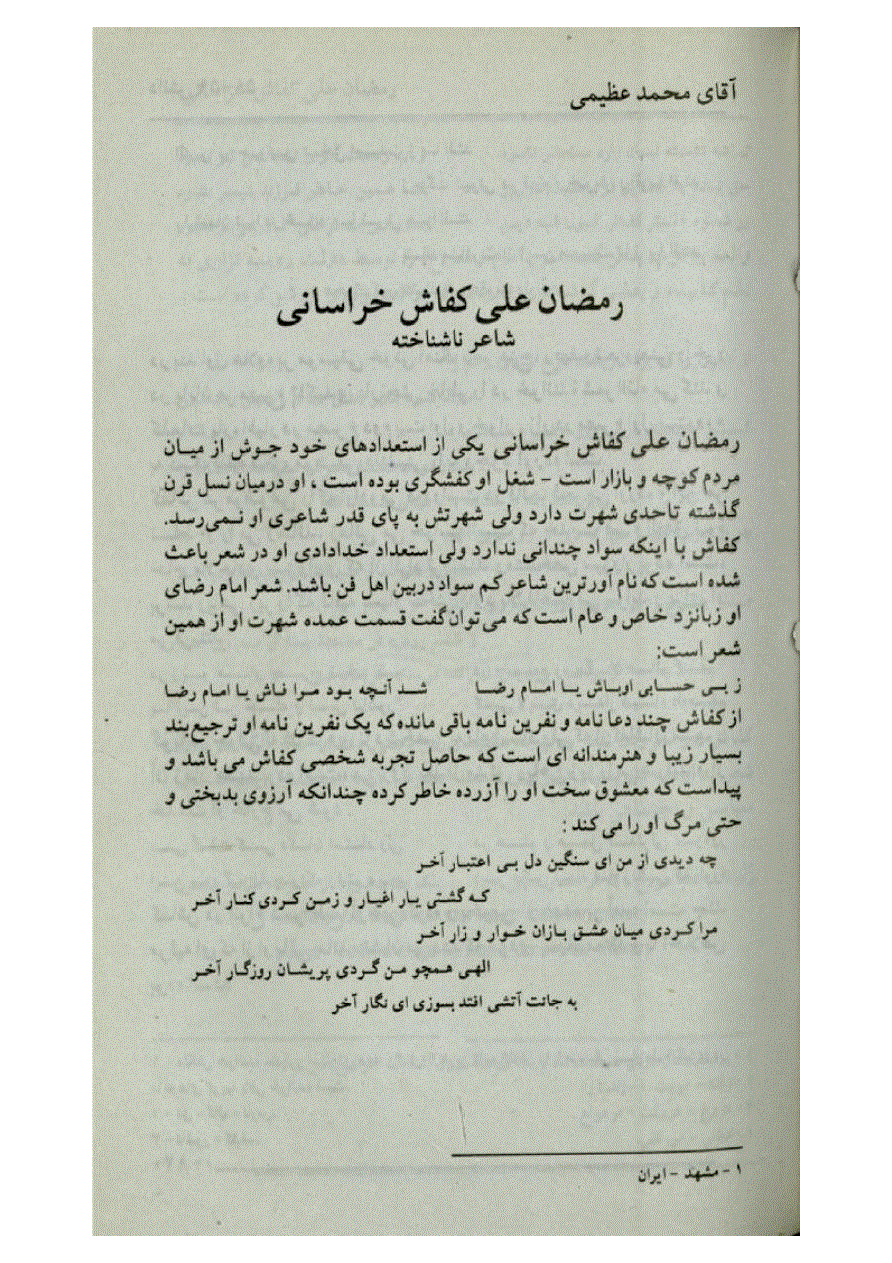 آقای محمد عظیمی
رمضان علی کفاش خراسانی
شاعر ناشناخته
رمضان علی کفاش خراسانی یکی از استعدادهای خود جوش از میان
مردم کوچه و بازار است - شغل او کفشگری بوده است ، او درمیان نسل قرن
گذشته تاحدی شهرت دارد ولی شهرتش به پای قدر شاعری او نمی‌رسد.
کفاش با اینکه سواد چندانی ندارد ولی استعداد خدادادی او در شعر باعث
شده است که نام آورترین شاعر کم سواد دربین اهل فن باشد. شعر امام رضای
او زبانزد خاص و عام است که می‌توان گفت قسمت عمده شهرت او از همین
شعر است:
ز بی حسابی اوباش یا امام رضا شد آنچه بود مرا فاش یا امام رضا
از کفاش چند دعا نامه و نفرین نامه باقی مانده که یک نفرین نامه او ترجیع‌بند
بسیار زیبا و هنرمندانه ای است که حاصل تجربه شخصی کفاش می باشد و
پیداست که معشوق سخت او را آزرده خاطر کرده چندانکه آرزوی بدبختی و
حتی مرگ او را می کند :
چه دیدی از من ای سنگین دل بی اعتبار آخر
که گشتی یار اغیار و زمن کردی کنار آخر
مرا کردی میان عشق بازان خوار و زار آخر
الهی همچو من گردی پریشان روزگار آخر
به جانت آتشی افتد بسوزی ای نگار آخر
۱ - مشهد - ایران